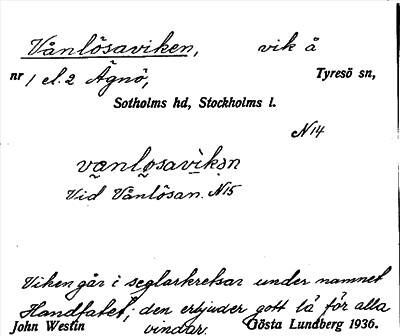 Vånlösaviken, vik å
nr 1 el. 2 Ägnö, Tyresö sn,
Sotholms hd, Stockholms l.
N14
vanlosavikən
Vid Vånlösan. N15
Viken går i seglarkretsar under namnet
"Handfatet"; den erbjuder gott lä för alla
John Westin vindar. Gösta Lundberg 1936.